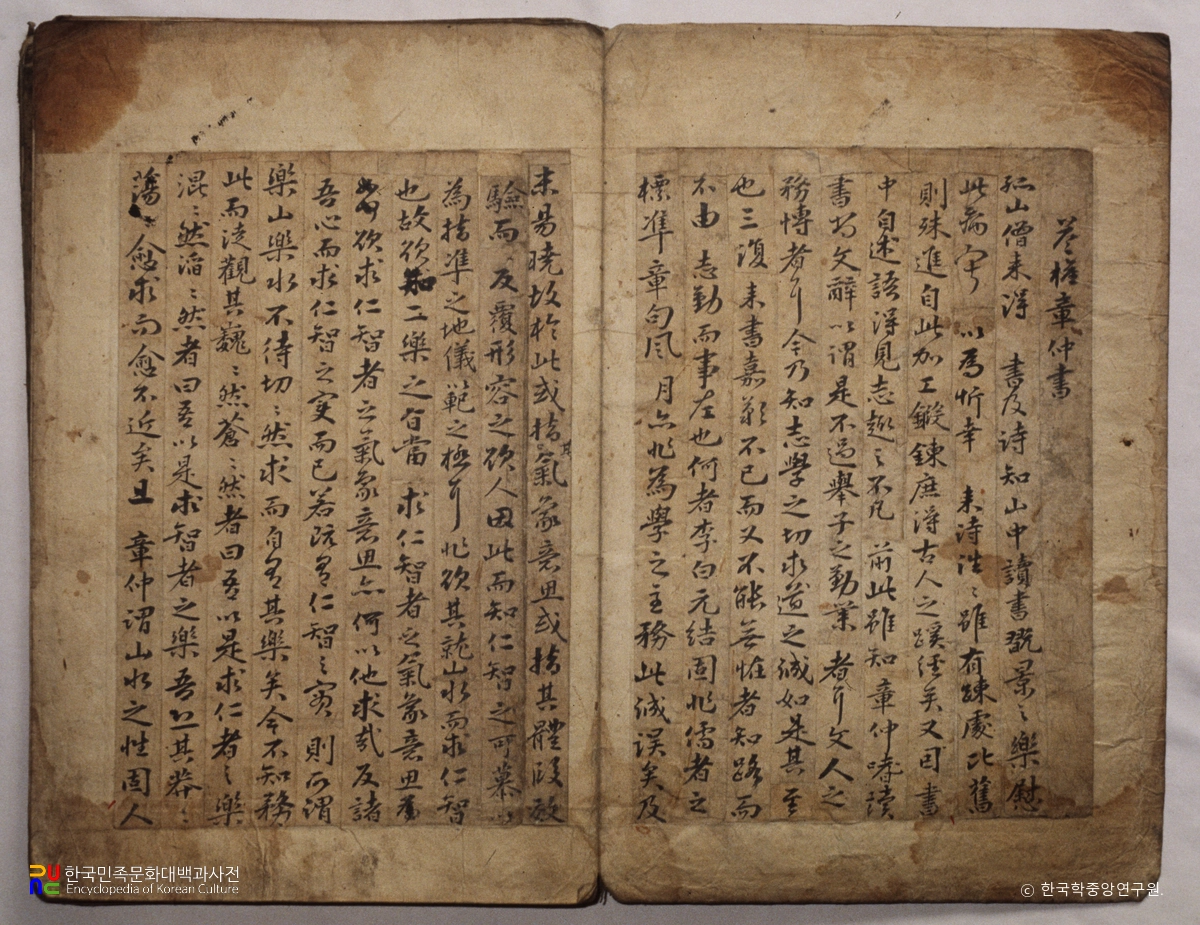 答權章仲書
孤山僧來得 書及詩知山中讀書翫景之樂慰
此病寥 以爲忻幸 來詩浩〻雖有疎處比舊
則殊進自此加工鍛鍊庶得古人之蹊徑矣又因書
中自述語得見志趣之不凡 前此雖知章仲嗜讀
書攻文辭以謂是不過擧子之勤業者耳文人之
務博者耳今乃知志學之切求道之誠如是其至
也三復來書嘉歎不已而又不能無怪者知路而
不由 志勤而事左也何者李白元結固非儒者之
標準章句風月亦非爲學之主務此誠誤矣及
未易曉故於此或指其氣象意思或指其體段效
驗而反覆形容之欲人因此而知仁智之可慕以
爲指準之地儀範之極耳非欲其就山水而求仁智
也故欲知二樂之旨當求仁智者之氣象意思
欲求仁智者之氣象意思亦何以他求哉反諸
吾心而求仁智之實而已若旣有仁智之實則所謂
樂山樂水不待切〻然求而自有其樂矣今不知務
此而徒觀其巍〻然蒼〻然者曰吾以是求仁者之樂
混〻然滔〻然者曰吾以是求智者之樂吾恐其莽〻
蕩〻愈求而愈不近矣且 章仲謂山水之性固人
한국민족문화대백과사전
Encyclopedia of Korean Culture
© 한국학중앙연구원.